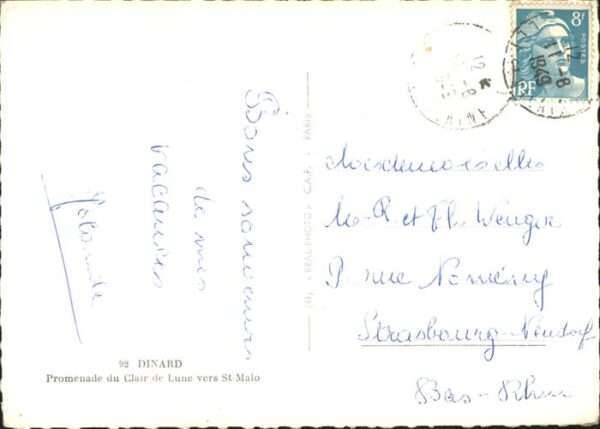 Bons souvenirs
de mes
vacances
Yolande
92 DINARD
Promenade du Clair de Lune vers St Malo
8F
POSTES
RF
11-8
1949
12
Mesdemoiselles
M-R et Th. Wenger
9 rue Nomény
Strasbourg-Neudorf
Bas-Rhin